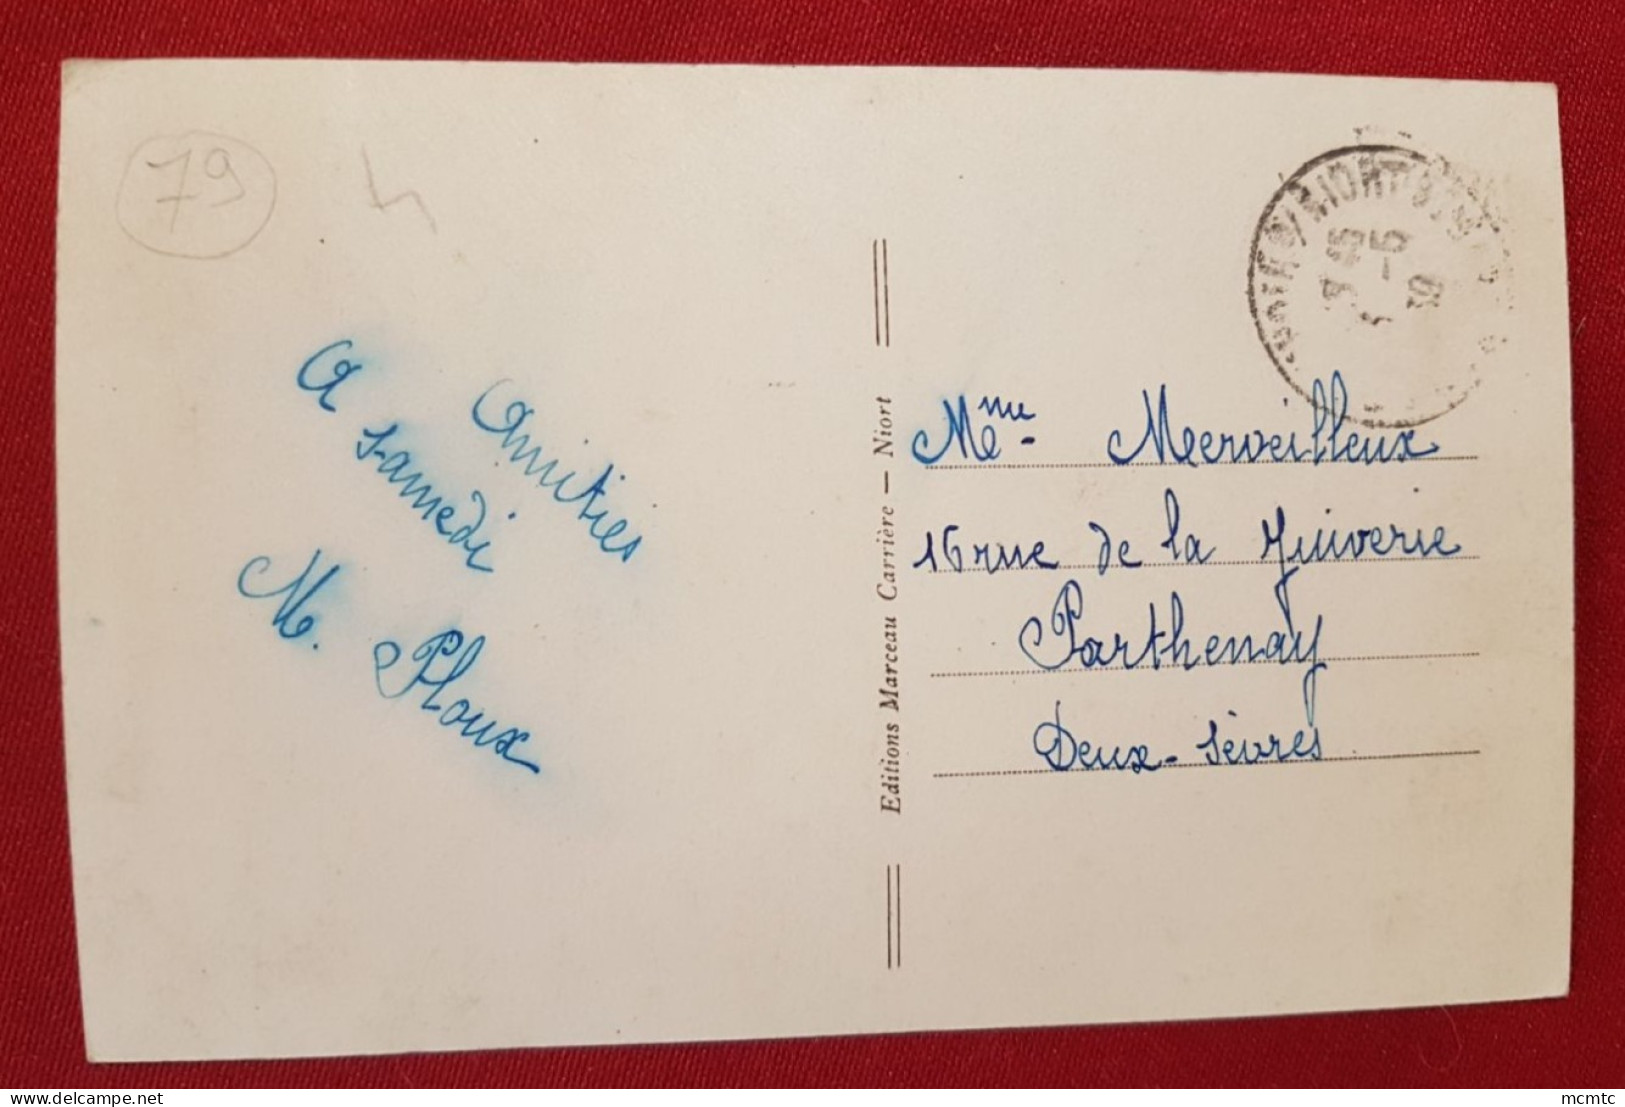 79
Amitiés
A samedi
M. Ploux
Editions Marceau Carrière — Niort
NIORT
Mme Merveilleux
16 rue de la Juiverie
Parthenay
Deux-Sèvres
mcmtc